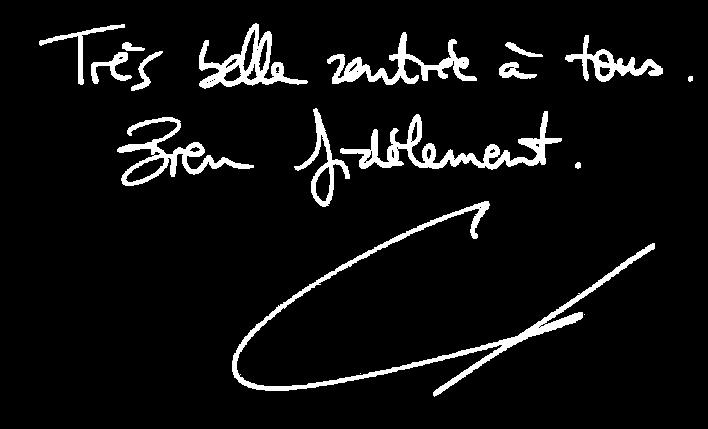 Très belle rentrée à tous.
Bien fidèlement.